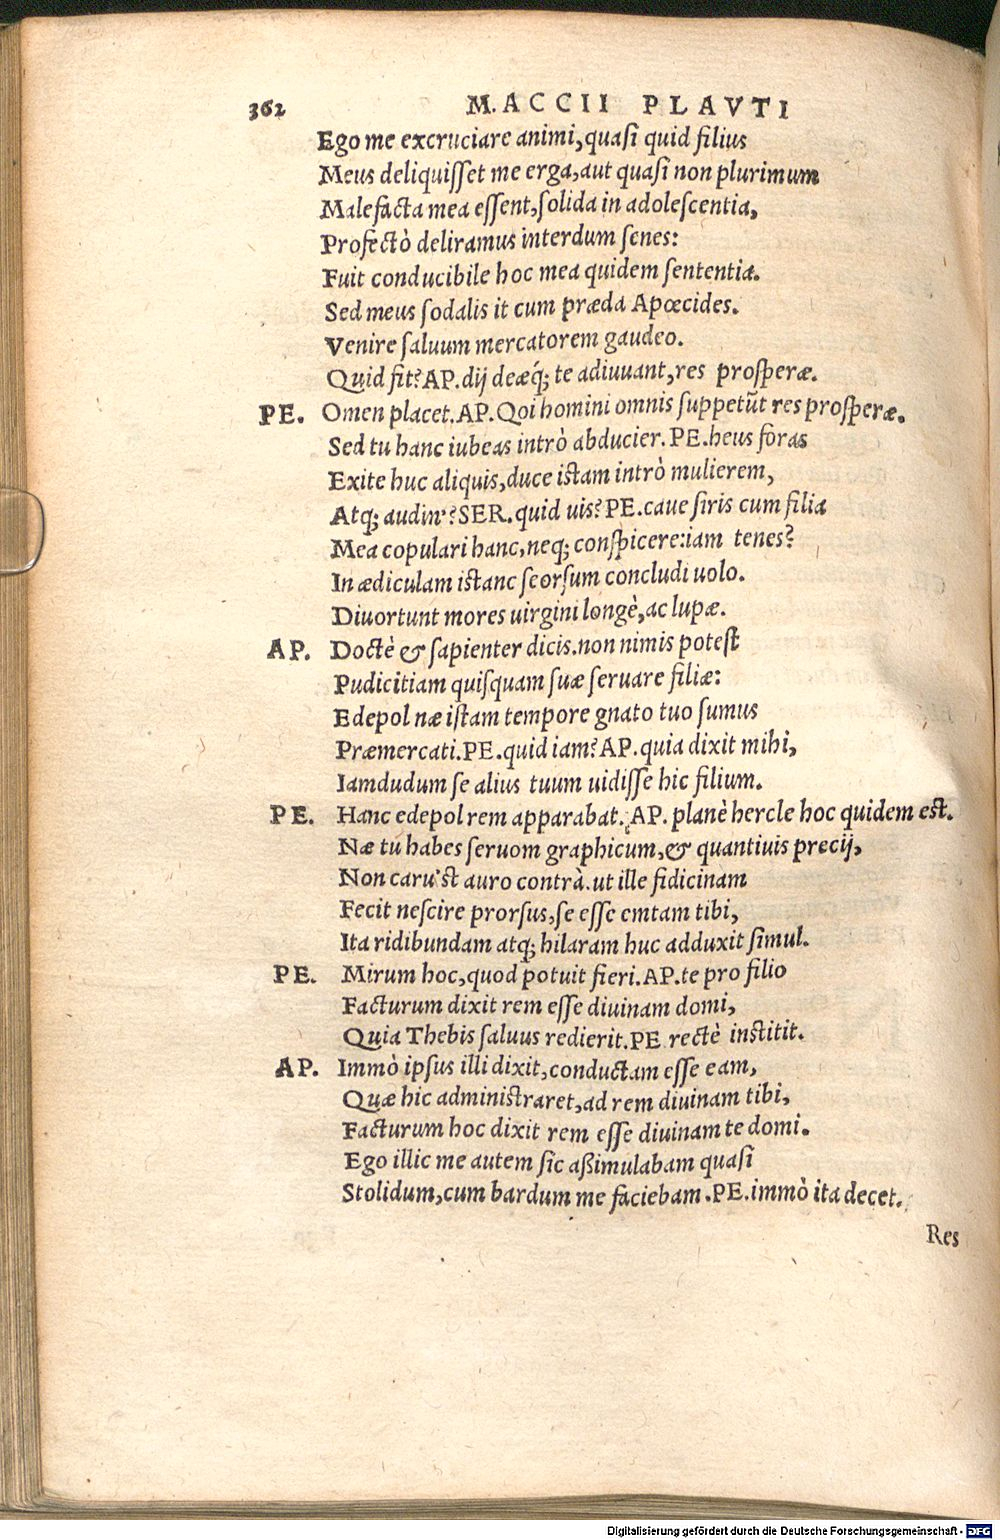 362 M. ACCII PLAVTI
Ego me excruciare animi, quasi quid filius
Meus deliquisset me erga, aut quasi non plurimum
Malefacta mea essent, solida in adolescentia,
Profectò deliramus interdum senes:
Fuit conducibile hoc mea quidem sententia.
Sed meus sodalis it cum præda Apœcides.
Venire saluum mercatorem gaudeo.
Quid fit? AP. dij deæq́; te adiuuant, res prosperæ.
PE. Omen placet. AP. Qoi homini omnis suppetũt res prosperæ.
Sed tu hanc iubeas intrò abducier. PE. heus foras
Exite huc aliquis, duce istam intrò mulierem,
Atq; audin'? SER. quid uis? PE. caue siris cum filia
Mea copulari hanc, neq; conspicere: iam tenes?
In ædiculam istanc seorsum concludi uolo.
Diuortunt mores uirgini longè, ac lupæ.
AP. Doctè & sapienter dicis. non nimis potest
Pudicitiam quisquam suæ seruare filiæ:
Edepol næ istam tempore gnato tuo sumus
Præmercati. PE. quid iam? AP. quia dixit mihi,
Iamdudum se alius tuum uidisse hic filium.
PE. Hanc edepol rem apparabat. AP. planè hercle hoc quidem est.
Næ tu habes seruom graphicum, & quantiuis precij,
Non caru'st auro contrà. ut ille fidicinam
Fecit nescire prorsus, se esse emtam tibi,
Ita ridibundam atq; hilaram huc adduxit simul.
PE. Mirum hoc, quod potuit fieri. AP. te pro filio
Facturum dixit rem esse diuinam domi,
Quia Thebis saluus redierit. PE rectè institit.
AP. Immò ipsus illi dixit, conductam esse eam,
Quæ hic administraret, ad rem diuinam tibi,
Facturum hoc dixit rem esse diuinam te domi.
Ego illic me autem sic aßimulabam quasi
Stolidum, cum bardum me faciebam. PE. immò ita decet.
Res
Digitalisierung gefördert durch die Deutsche Forschungsgemeinschaft - DFG